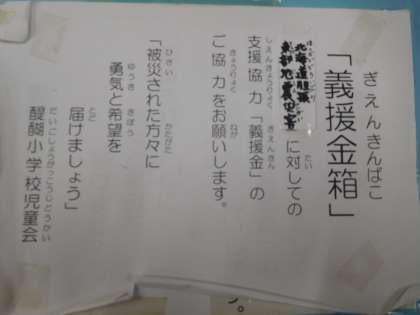 ぎえんきんばこ
「義援金箱」
ほっかいどういぶり
北海道胆振
東部地震災害
に対しての
たい
支援協力「義援金」の
しえんきょうりょく ぎえんきん
ご協力をお願いします。
きょうりょく ねが
「被災された方々に
ひさい かたがた
勇気と希望を
ゆうき きぼう
届けましょう」
とど
醍醐小学校児童会
だいごしょうがっこうじどうかい